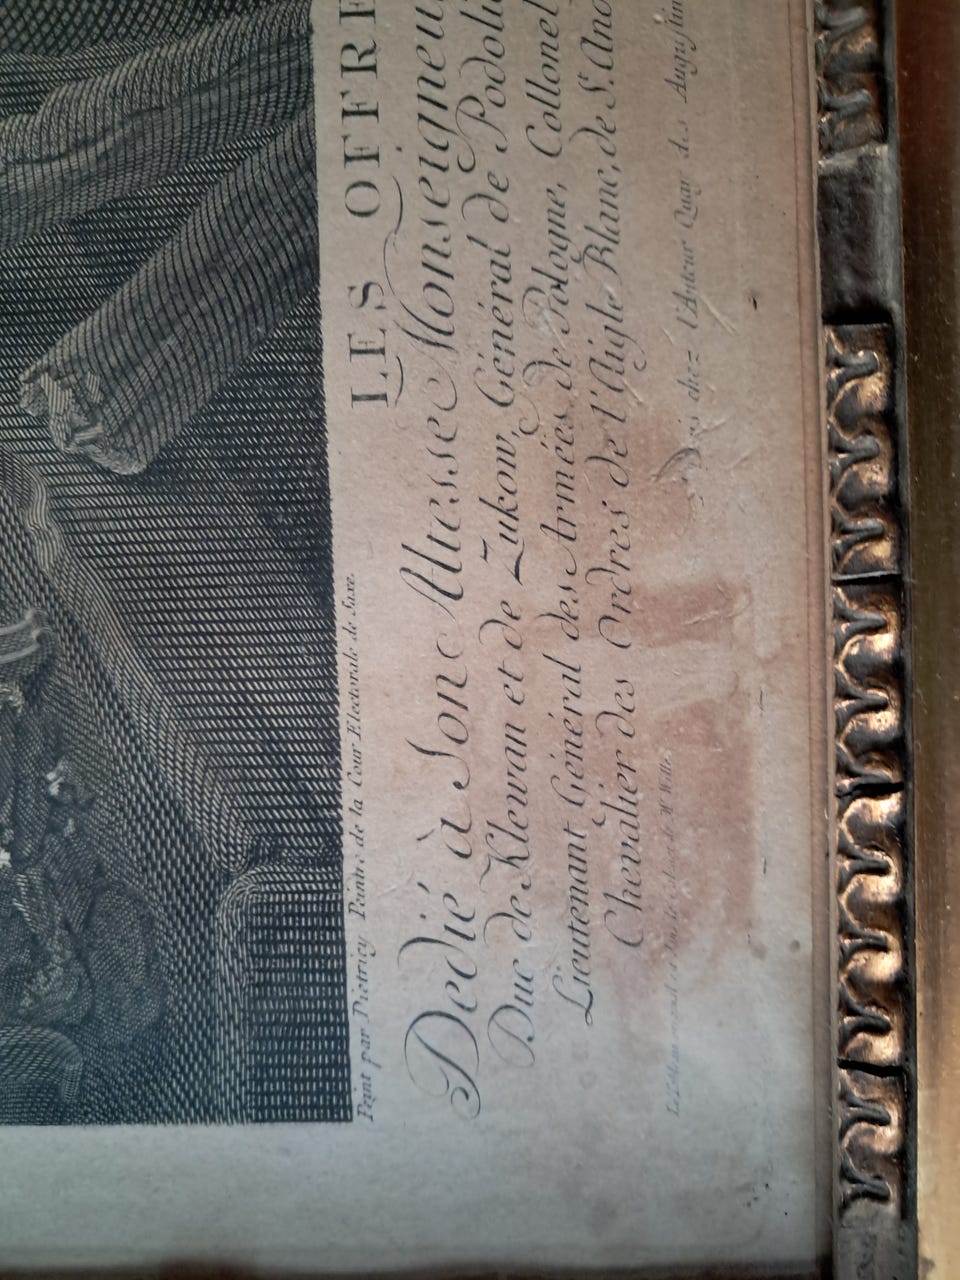 Peint par Dietricy Peintre de la Cour Electorale de Saxe.
LES OFFRE
Dedié à Son Altesse Monseigneur
Duc de Klewan et de Zukow, Général de Podolie
Lieutenant Général des Armées de Pologne, Collonel
Chevalier des Ordres de l'Aigle Blanc, de St. And
Le Tableau original est dans le cabinet de Mr. Wille.
à Paris chez l'Auteur Quay des Augustins